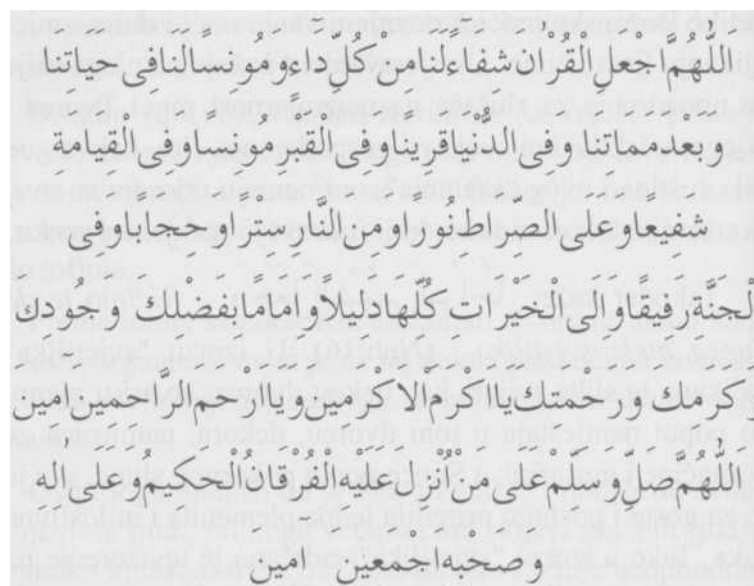 اَللّٰهُمَّ اجْعَلِ الْقُرْاٰنَ شِفَاءً لَنَا مِنْ كُلِّ دَاءٍ وَمُونِسًا لَنَا فِى حَيَاتِنَا
وَبَعْدَ مَمَاتِنَا وَفِى الدُّنْيَا قَرِينًا وَفِى الْقَبْرِ مُونِسًا وَفِى الْقِيَامَةِ
شَفِيعًا وَعَلَى الصِّرَاطِ نُورًا وَمِنَ النَّارِ سِتْرًا وَحِجَابًا وَفِى
لْجَنَّةِ رَفِيقًا وَاِلَى الْخَيْرَاتِ كُلِّهَا دَلِيلًا وَاِمَامًا بِفَضْلِكَ وَجُودِكَ
وَكَرَمِكَ وَرَحْمَتِكَ يَا اَكْرَمَ الْاَكْرَمِينَ وَيَا اَرْحَمَ الرَّاحِمِينَ اٰمِينَ
اَللّٰهُمَّ صَلِّ وَسَلِّمْ عَلَى مَنْ اُنْزِلَ عَلَيْهِ الْفُرْقَانُ الْحَكِيمُ وَعَلَى اٰلِهِ
وَصَحْبِهِ اَجْمَعِينَ اٰمِينَ